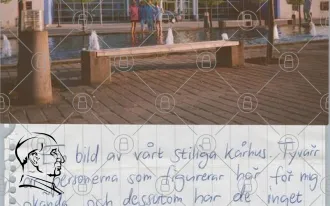 bild av vårt stiliga kårhus. Tyvärr
personerna som figurerar här för mig
okända och dessutom har de inget